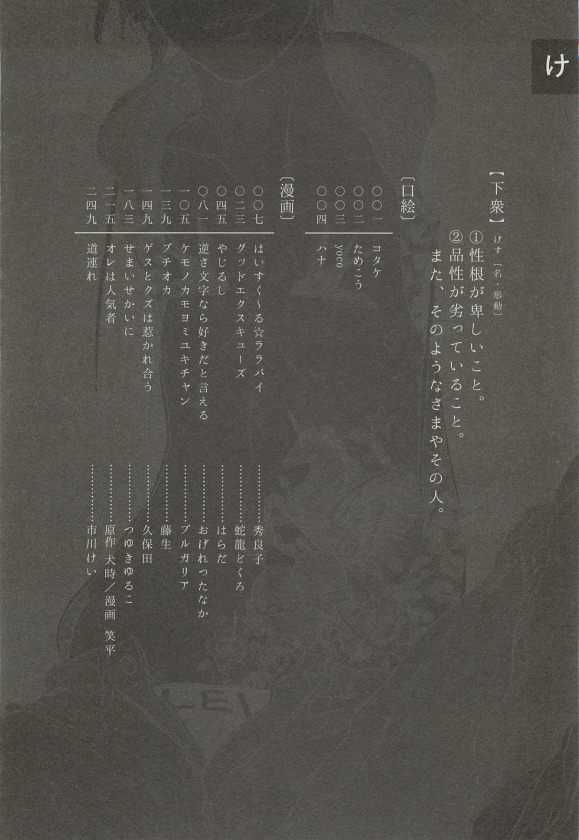 け
【下衆】 げす［名・形動］
①性根が卑しいこと。
②品性が劣っていること。
また、そのようなさまやその人。
［口絵］
〇〇一 コタケ
〇〇二 ためこう
〇〇三 yoco
〇〇四 ハナ
［漫画］
〇〇七 はいすく～る☆ララバイ…………秀良子
〇二三 グッドエクスキューズ…………蛇龍どくろ
〇四五 やじるし…………はらだ
〇八一 逆さ文字なら好きだと言える…………おげれつたなか
一〇五 ケモノカモヨミユキチャン…………ブルガリア
一三九 プチオカ…………藤生
一四九 ゲスとクズは惹かれ合う…………久保田
一八三 せまいせかいに…………つゆきゆるこ
二一五 オレは人気者…………原作 犬時／漫画 笑平
二四九 道連れ…………市川けい
LEI